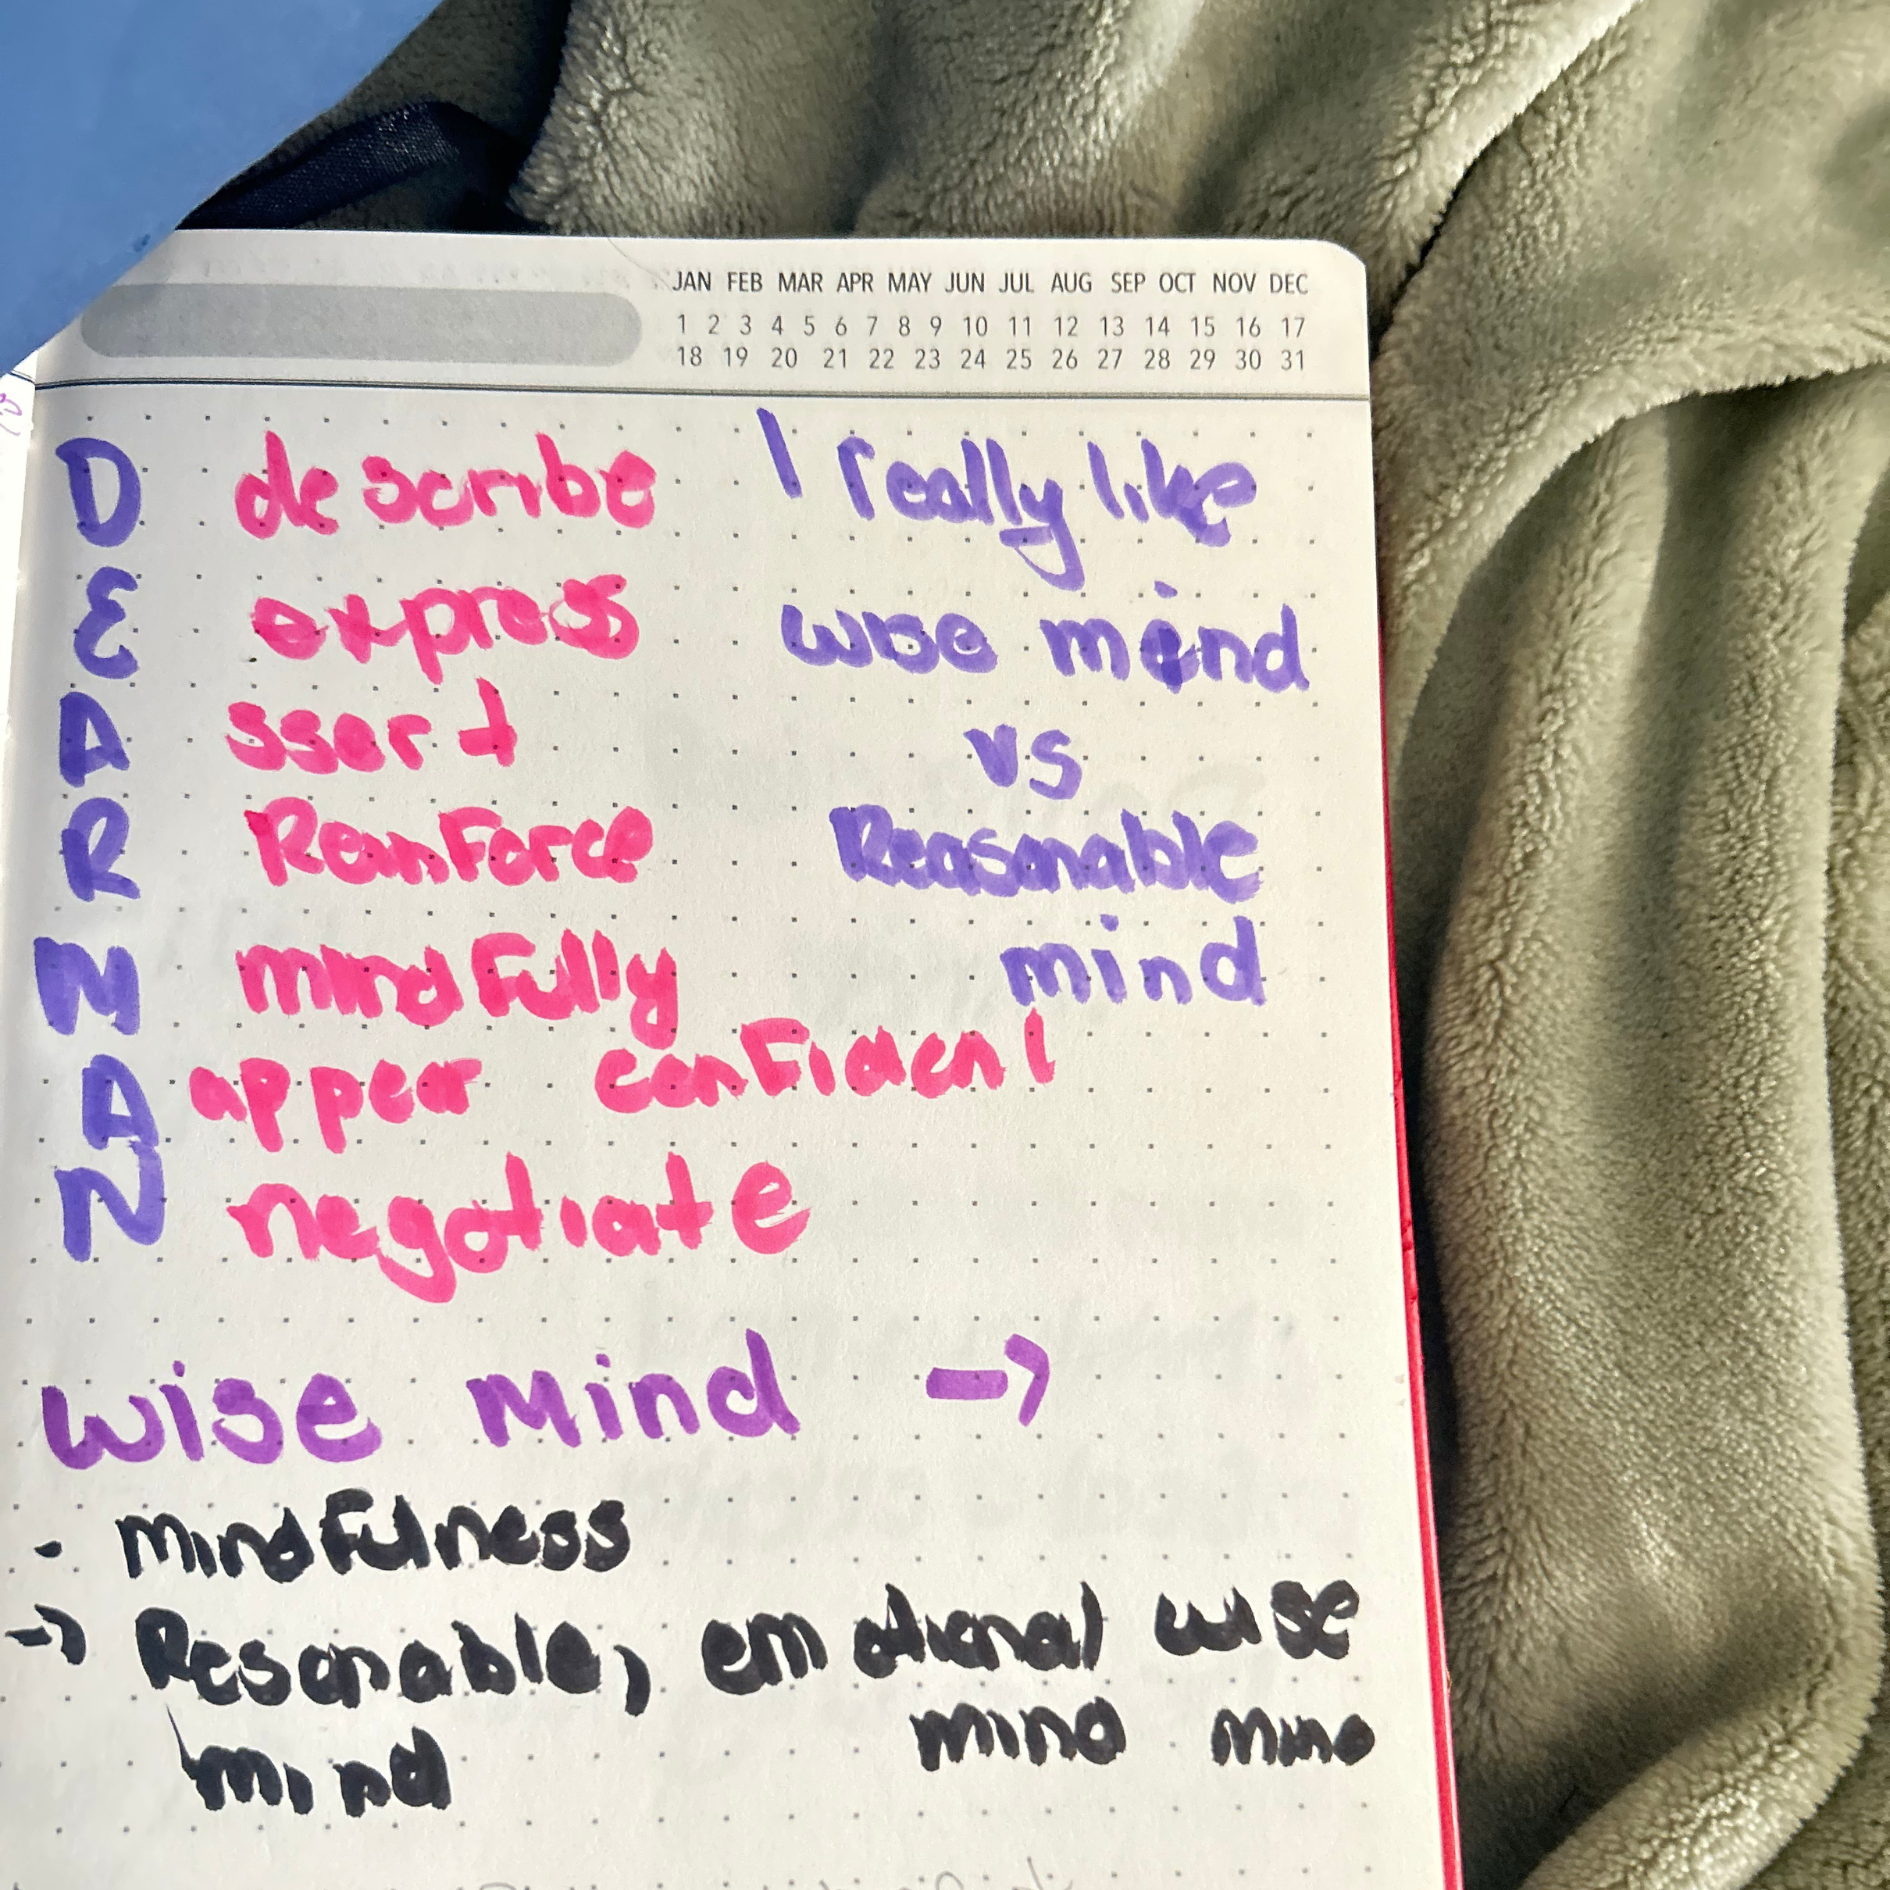 JAN FEB MAR APR MAY JUN JUL AUG SEP OCT NOV DEC
1 2 3 4 5 6 7 8 9 10 11 12 13 14 15 16 17
18 19 20 21 22 23 24 25 26 27 28 29 30 31
D describe
E express
A ssert
R Reinforce
M mindfully
A appear confident
N negotiate
I really like
wise mind
vs
Reasonable
mind
wise mind →
· mindfulness
→ Resonable, emotional wise
mind mind mind